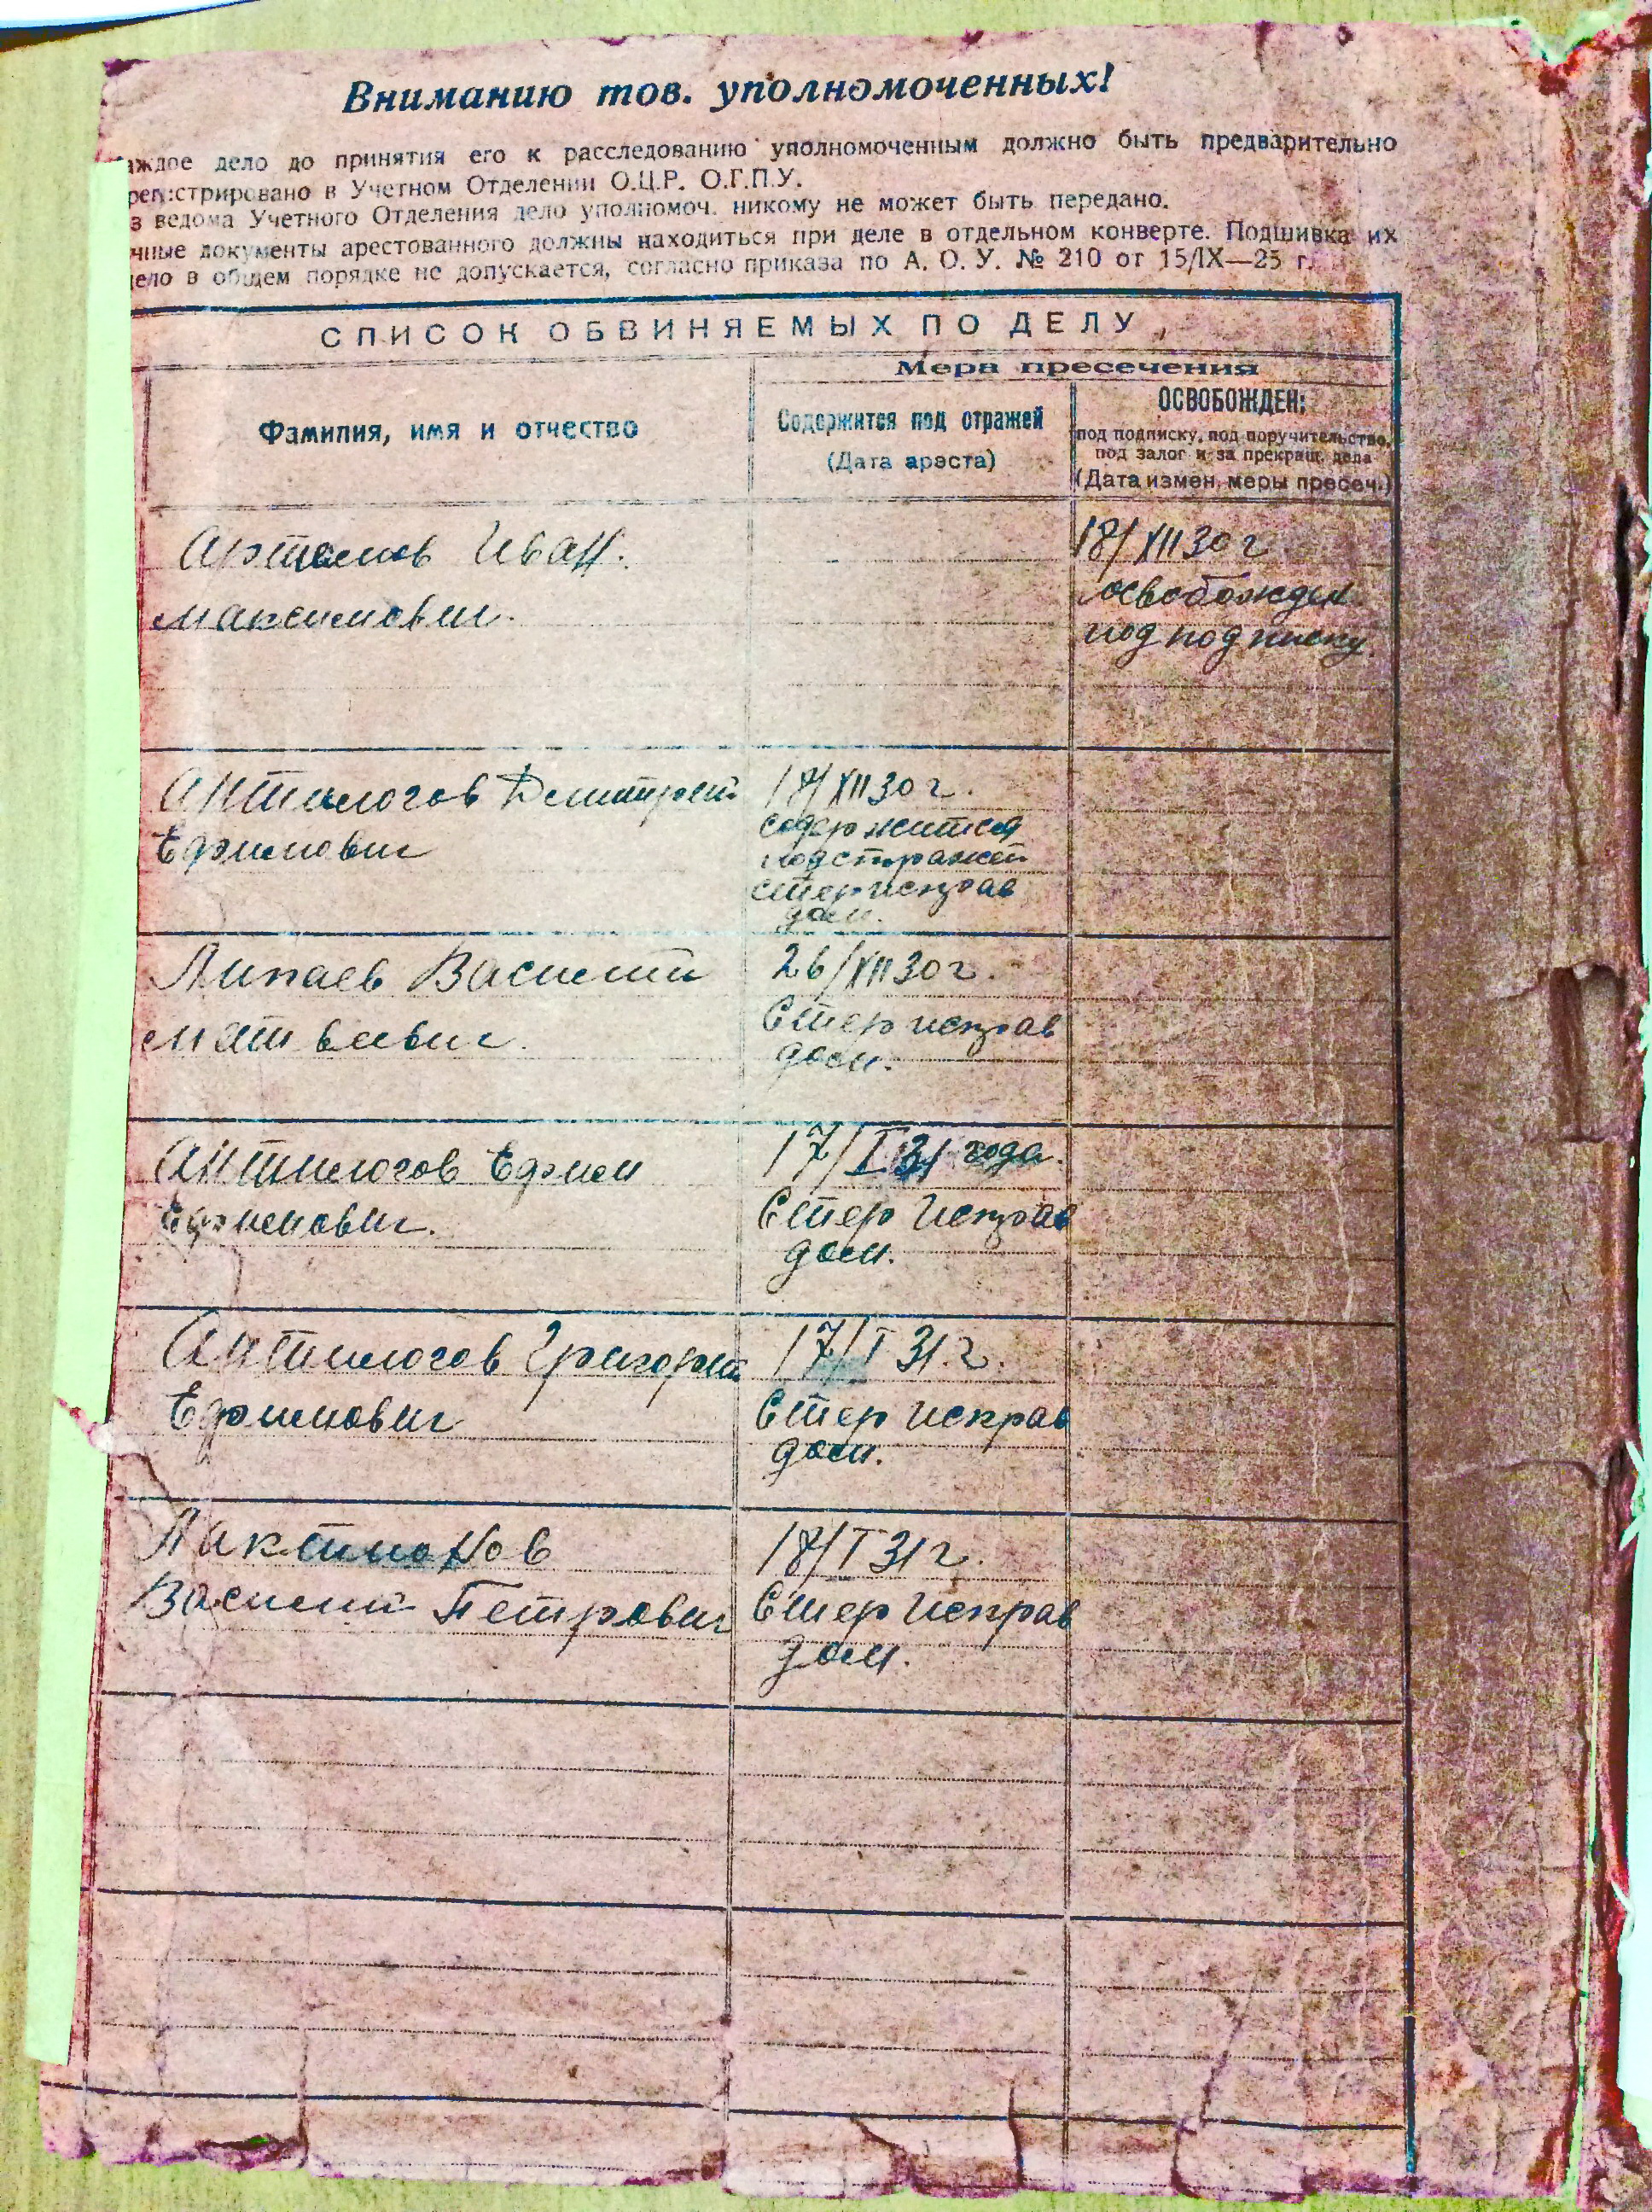 Вниманию тов. уполномоченных!
аждое дело до принятия его к расследованию уполномоченным должно быть предварительно
регистрировано в Учетном Отделении О.Ц.Р. О.Г.П.У.
з ведома Учетного Отделения дело уполномоч. никому не может быть передано.
чные документы арестованного должны находиться при деле в отдельном конверте. Подшивка их
дело в общем порядке не допускается, согласно приказа по А. О. У. № 210 от 15/IX—25 г.
СПИСОК ОБВИНЯЕМЫХ ПО ДЕЛУ
Мера пресечения
Фамилия, имя и отчество
Содержится под отражей
(Дата ареста)
ОСВОБОЖДЕН:
под подписку, под поручительство,
под залог и за прекращ. дела
(Дата измен. меры пресеч.)
Артамов Иван.
Максимович.
-
18/XII 30 г
освобожден.
под подписку.
Антилогов Дмитрий
Ефимович
18/XII 30 г.
содержится
под стражей
Стер исправ
дом.
Липаев Василий
Матвеевич.
26/XII 30 г.
Стер исправ
дом.
Антилогов Ефим
Ефимович.
17/I 31 года.
Стер Исправ
дом.
Антилогов Григорий
Ефимович
17/I 31. г.
Стер исправ
дом.
Лактионов
Василий Петрович
18/I 31 г.
Стер Исправ
дом.